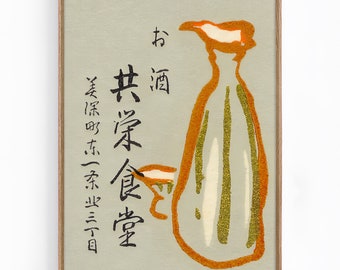 お酒
共栄食堂
美深町东一条北三丁目